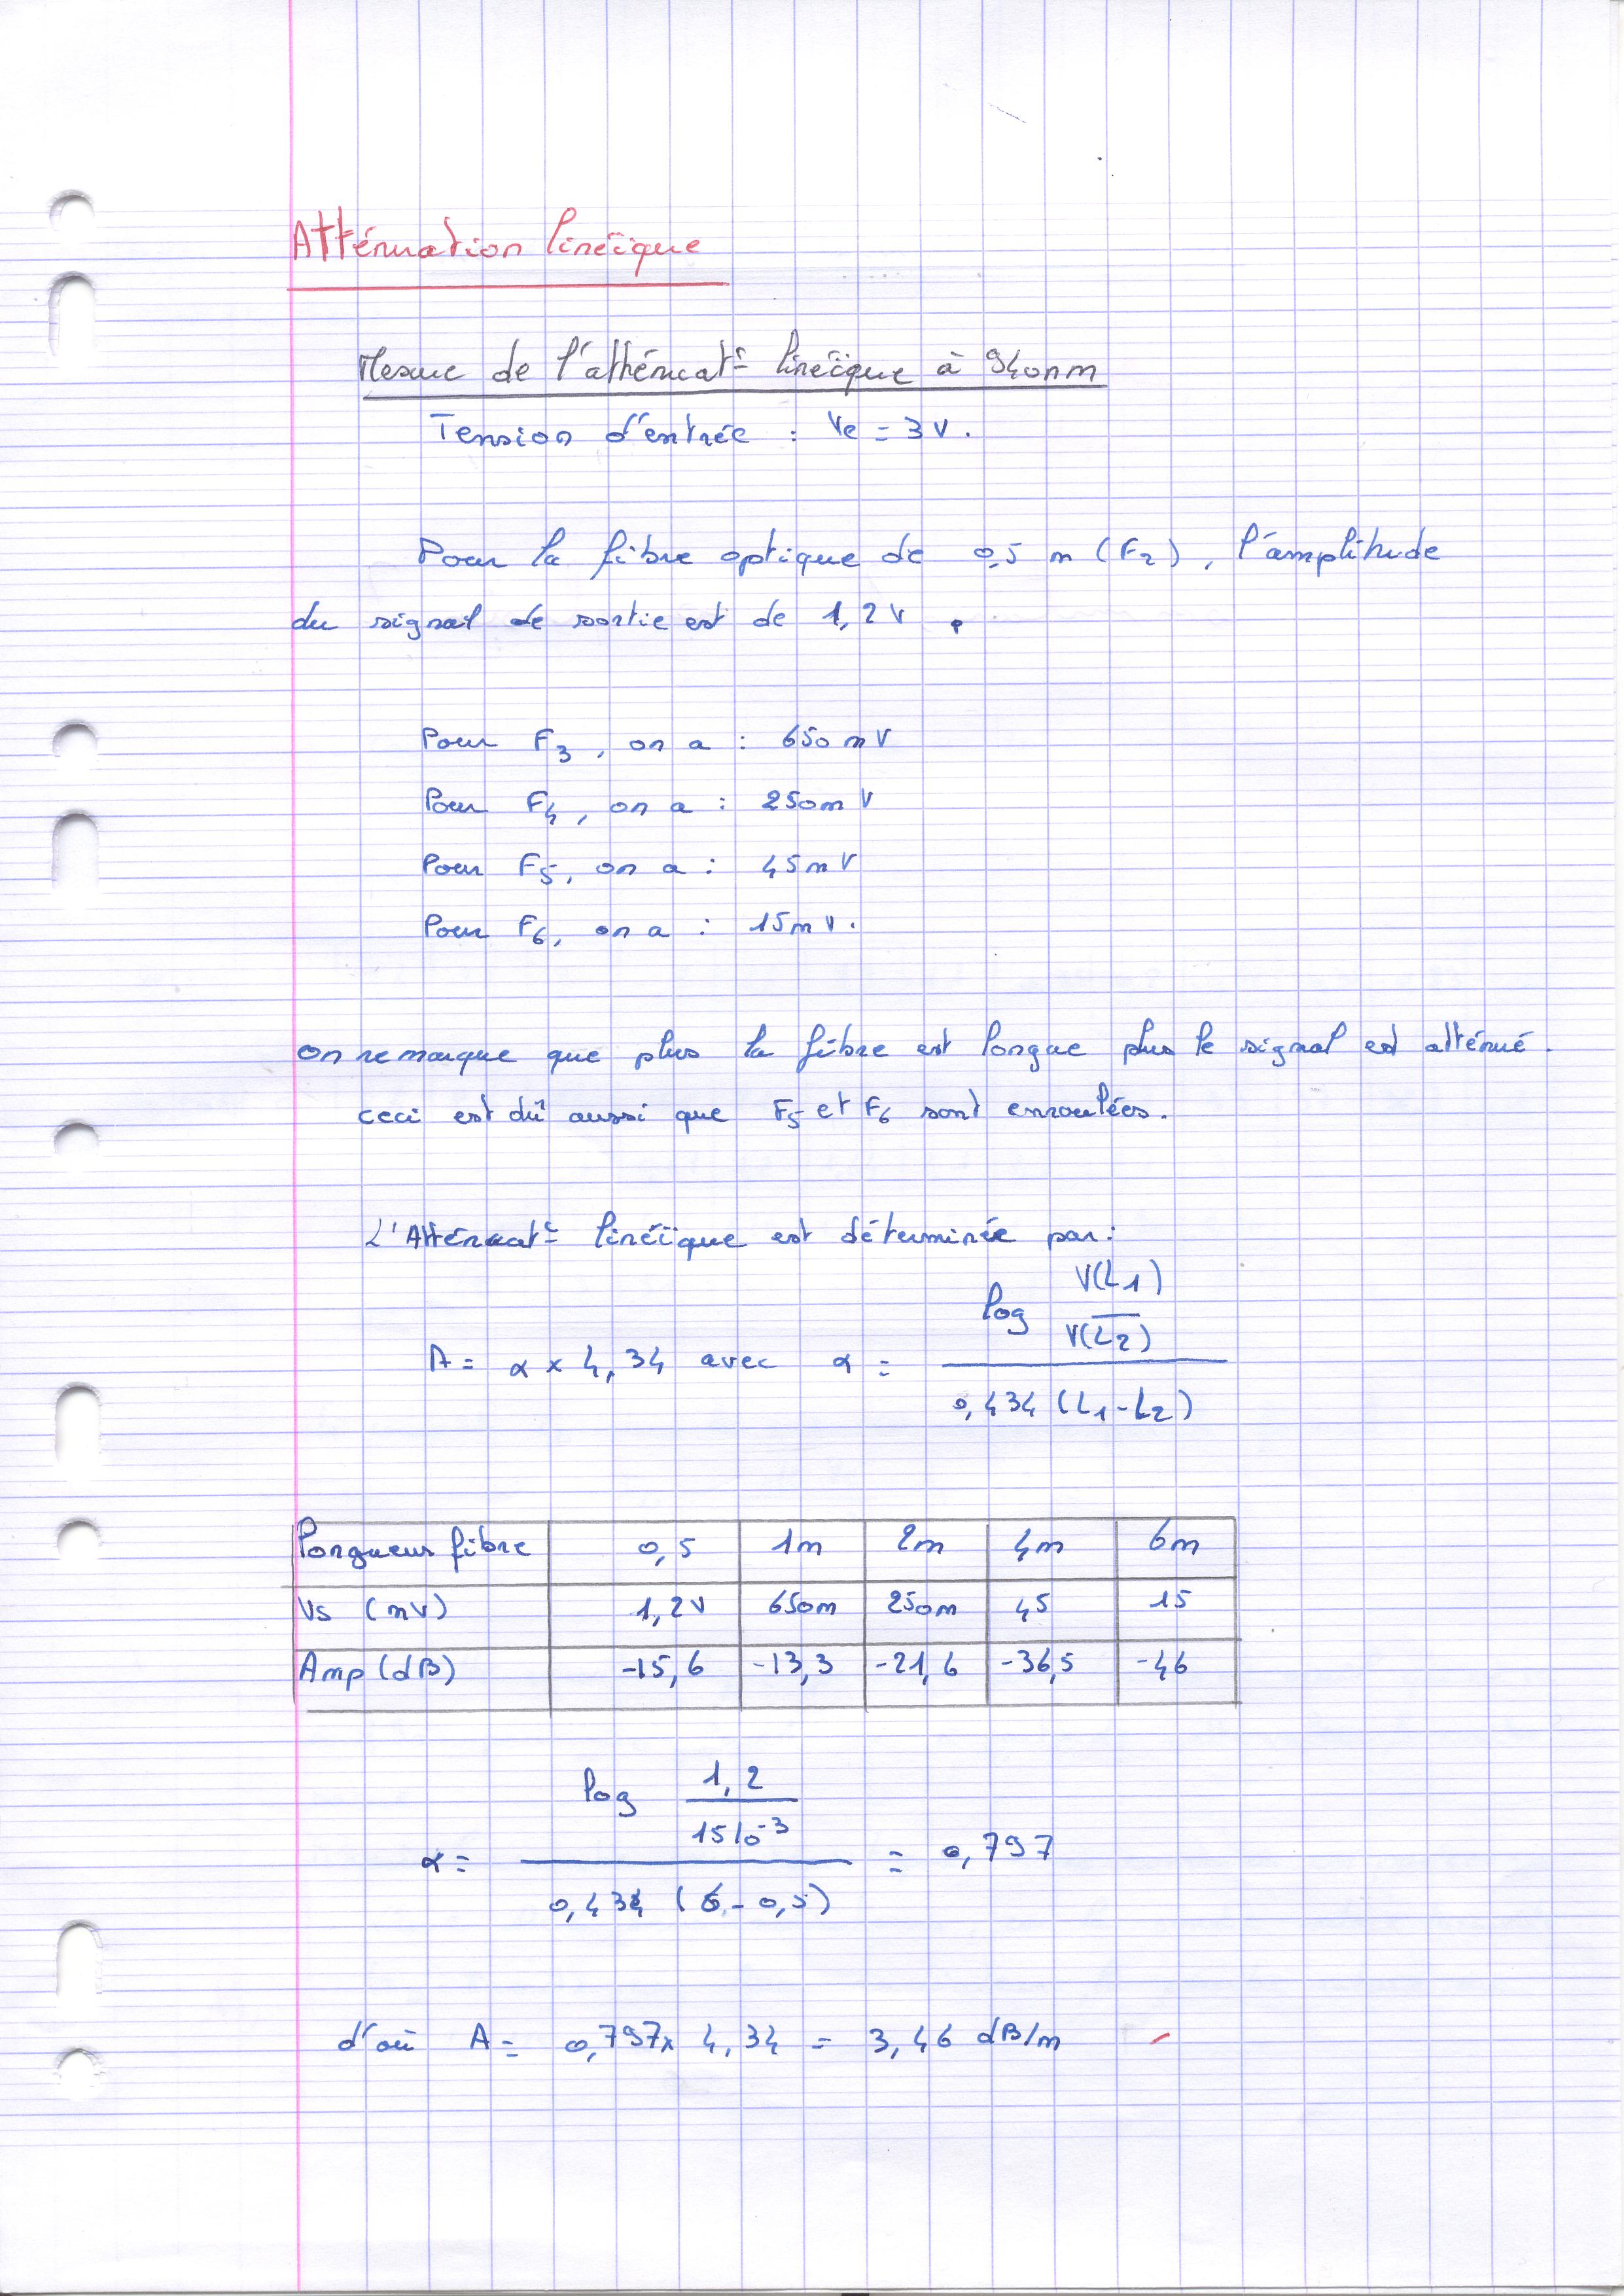 Atténuation linéïque
Mesure de l'atthénuat° linéïque à 940nm
Tension d'entrée : Ve = 3V.
Pour la fibre optique de 0,5 m (F2), l'amplitude
du signal de sortie est de 1,2V .
Pour F3, on a : 650mV
Pour F4, on a : 250mV
Pour F5, on a : 45mV
Pour F6, on a : 15mV.
on remarque que plus la fibre est longue plus le signal est atténué.
ceci est dû aussi que F5 et F6 sont enroulées.
L'Atténuat° linéïque est déterminée par :
A = α x 4,34 avec α = log V(L1) / V(L2) / 0,434 (L1-L2)
longueur fibre 0,5 1m 2m 4m 6m
Vs (mV) 1,2V 650m 250m 45 15
Amp (dB) -15,6 -13,3 -21,6 -36,5 -46
α = log 1,2 / 15 10-3 / 0,434 (6-0,5) = 0,797
d'où A = 0,797x 4,34 = 3,46 dB/m